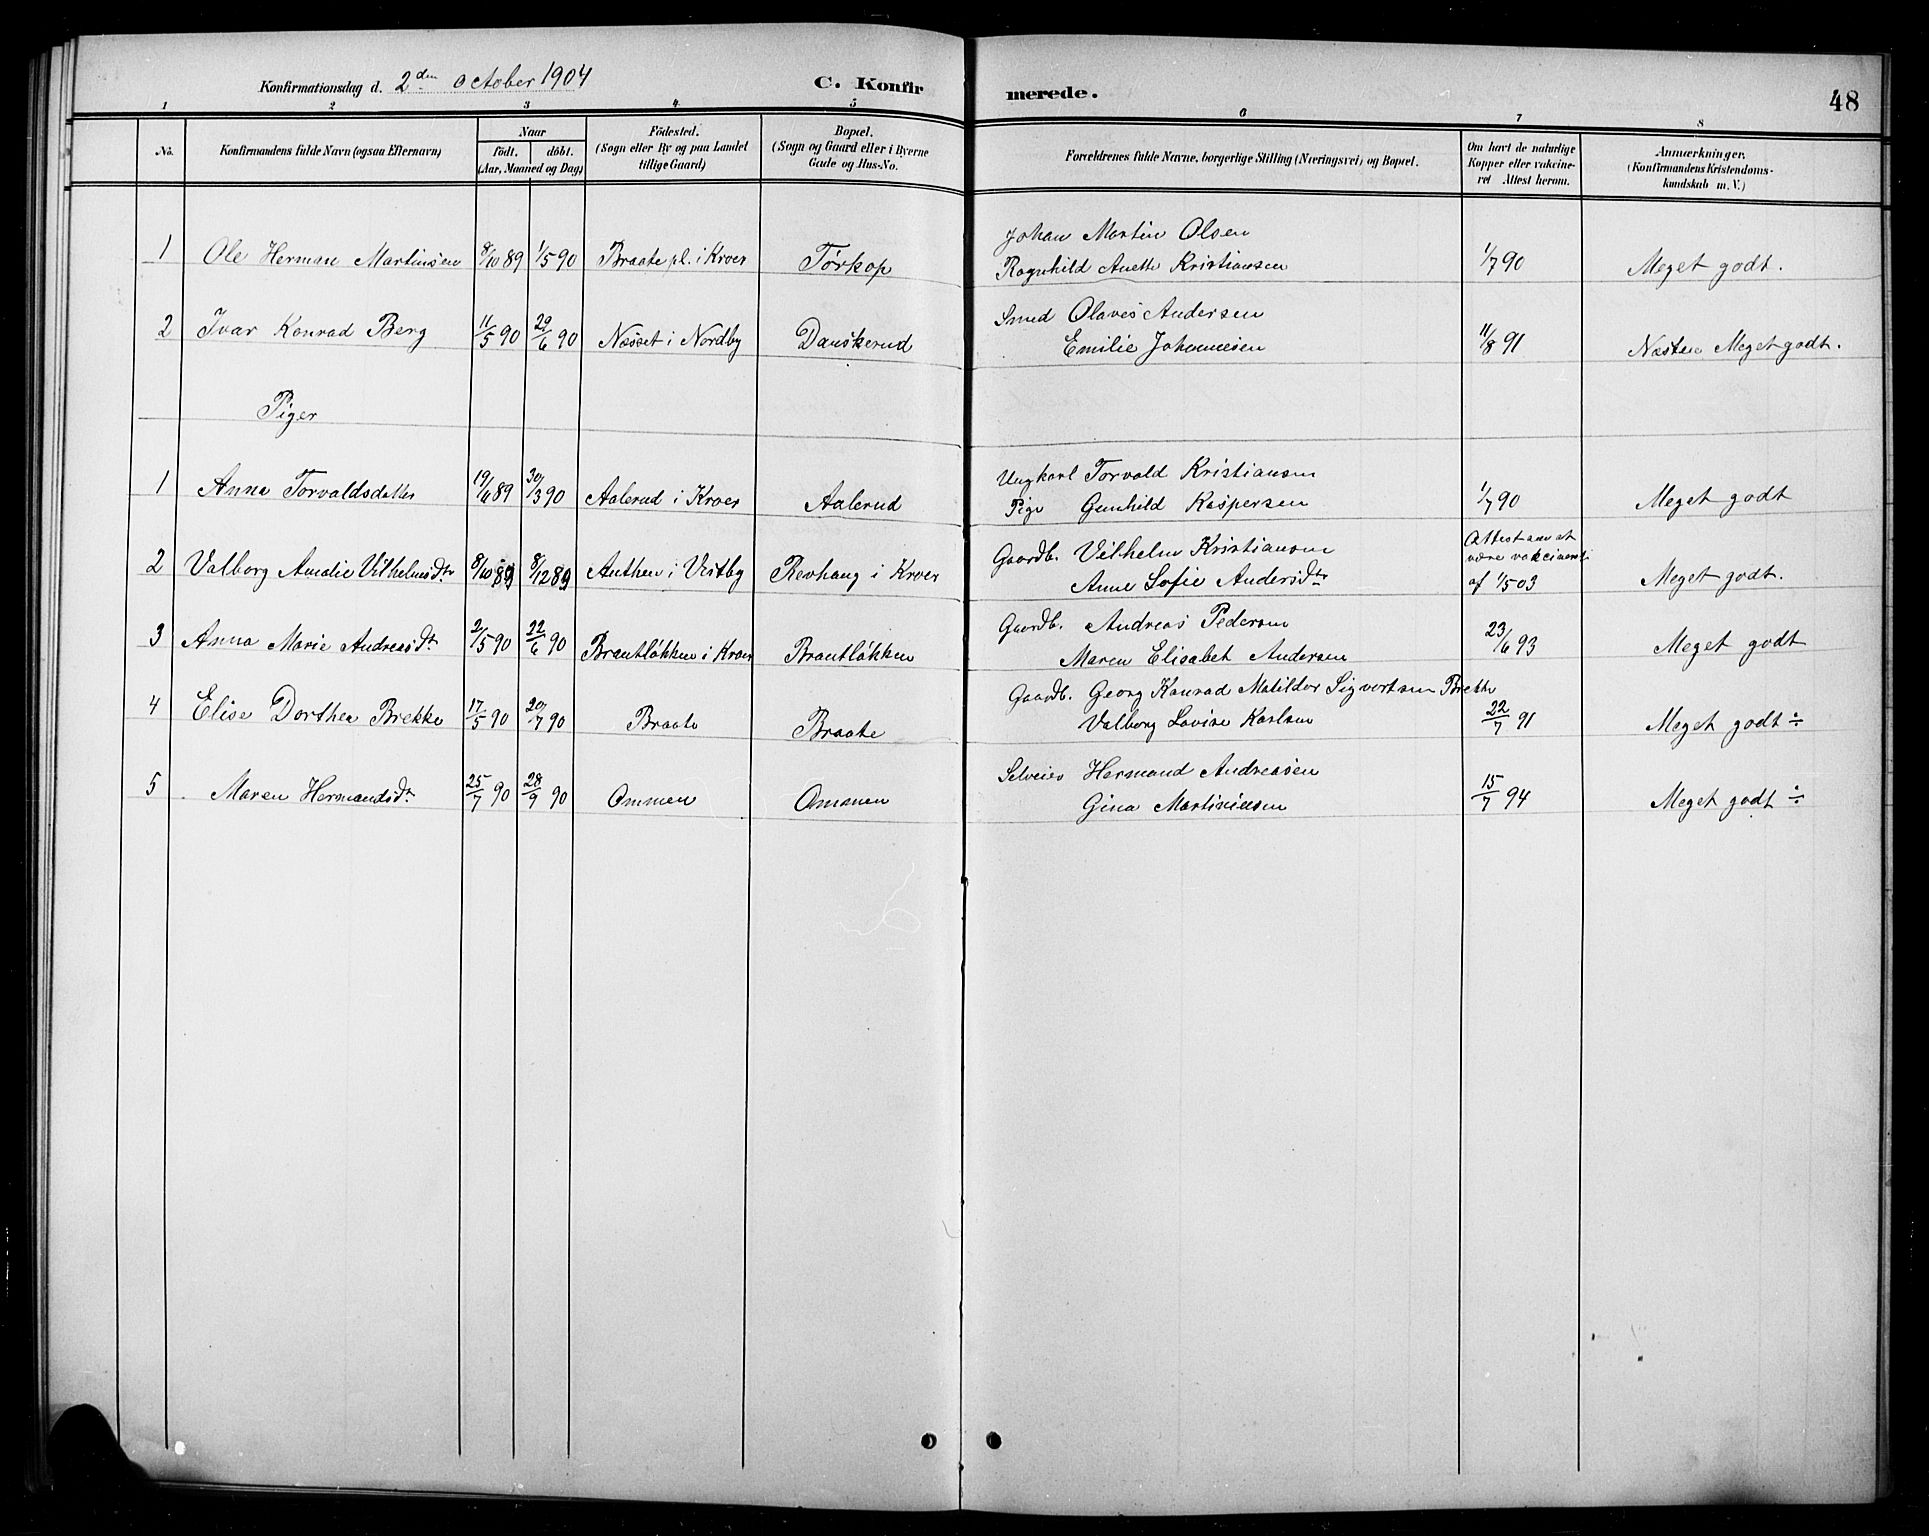 Konfirmationsdag d. 2den October 1904
C. Konfirmerede.
48
1 2 3 4 5 6 7 8
No. Konfirmandens fulde Navn (ogsaa Efternavn) Naar födt. döbt. (Aar, Maaned og Dag) Födested. (Sogn eller By og paa Landet tillige Gaard) Bopæl. (Sogn og Gaard eller i Byerne Gade og Hus-No. Forældrenes fulde Navne, borgerlige Stilling (Næringsvei) og Bopæl. Om havt de naturlige Kopper eller vakcineret Attest herom. Anmærkninger. (Konfirmandens Kristendomskundskab m. V.)
1 Ole Herman Martinsen 8/10 89 1/5 90 Braate pl. i Kroer Tørkop Johan Martin Olsen
Ragnhild Anette Kristiansen 1/7 90 Meget godt.
2 Ivar Konrad Berg 11/5 90 29/6 90 Næsset i Nordby Danskerud Smed Olaves Andersen
Emilie Johannesen 11/8 91 Næsten Meget godt.
Piger
1 Anna Torvaldsdatter 19/6 89 30/3 90 Aalerud i Kroer Aalerud Ungkarl Torvald Kristiansen
Pige Gunhild Kaspersen 1/7 90 Meget godt
2 Valborg Amalie Vilhelmsdtr 8/10 89 8/12 89 Anthen i Vestby Revhaug i Kroer Gaardb. Vilhelm Kristiansen
Anne Sofie Andersdtr Attest om at være vakcineret af 1/5 03 Meget godt.
3 Anna Marie Andreasdtr 2/5 90 22/6 90 Brantløkken i Kroer Brantløkken Gaardb. Andreas Pedersen
Maren Elisabet Andersen 23/6 93 Meget godt
4 Elise Dorthea Brekke 17/5 90 20/7 90 Braate Braate Gaardb. Georg Konrad Matilder Sigvertsen Brekke
Valborg Lovise Karlsen 22/7 91 Meget godt ÷
5 Maren Hermandsdtr 25/7 90 28/9 90 Ommen Ommen Selveier Hermand Andreasen
Gina Martiniusen 15/7 94 Meget godt ÷